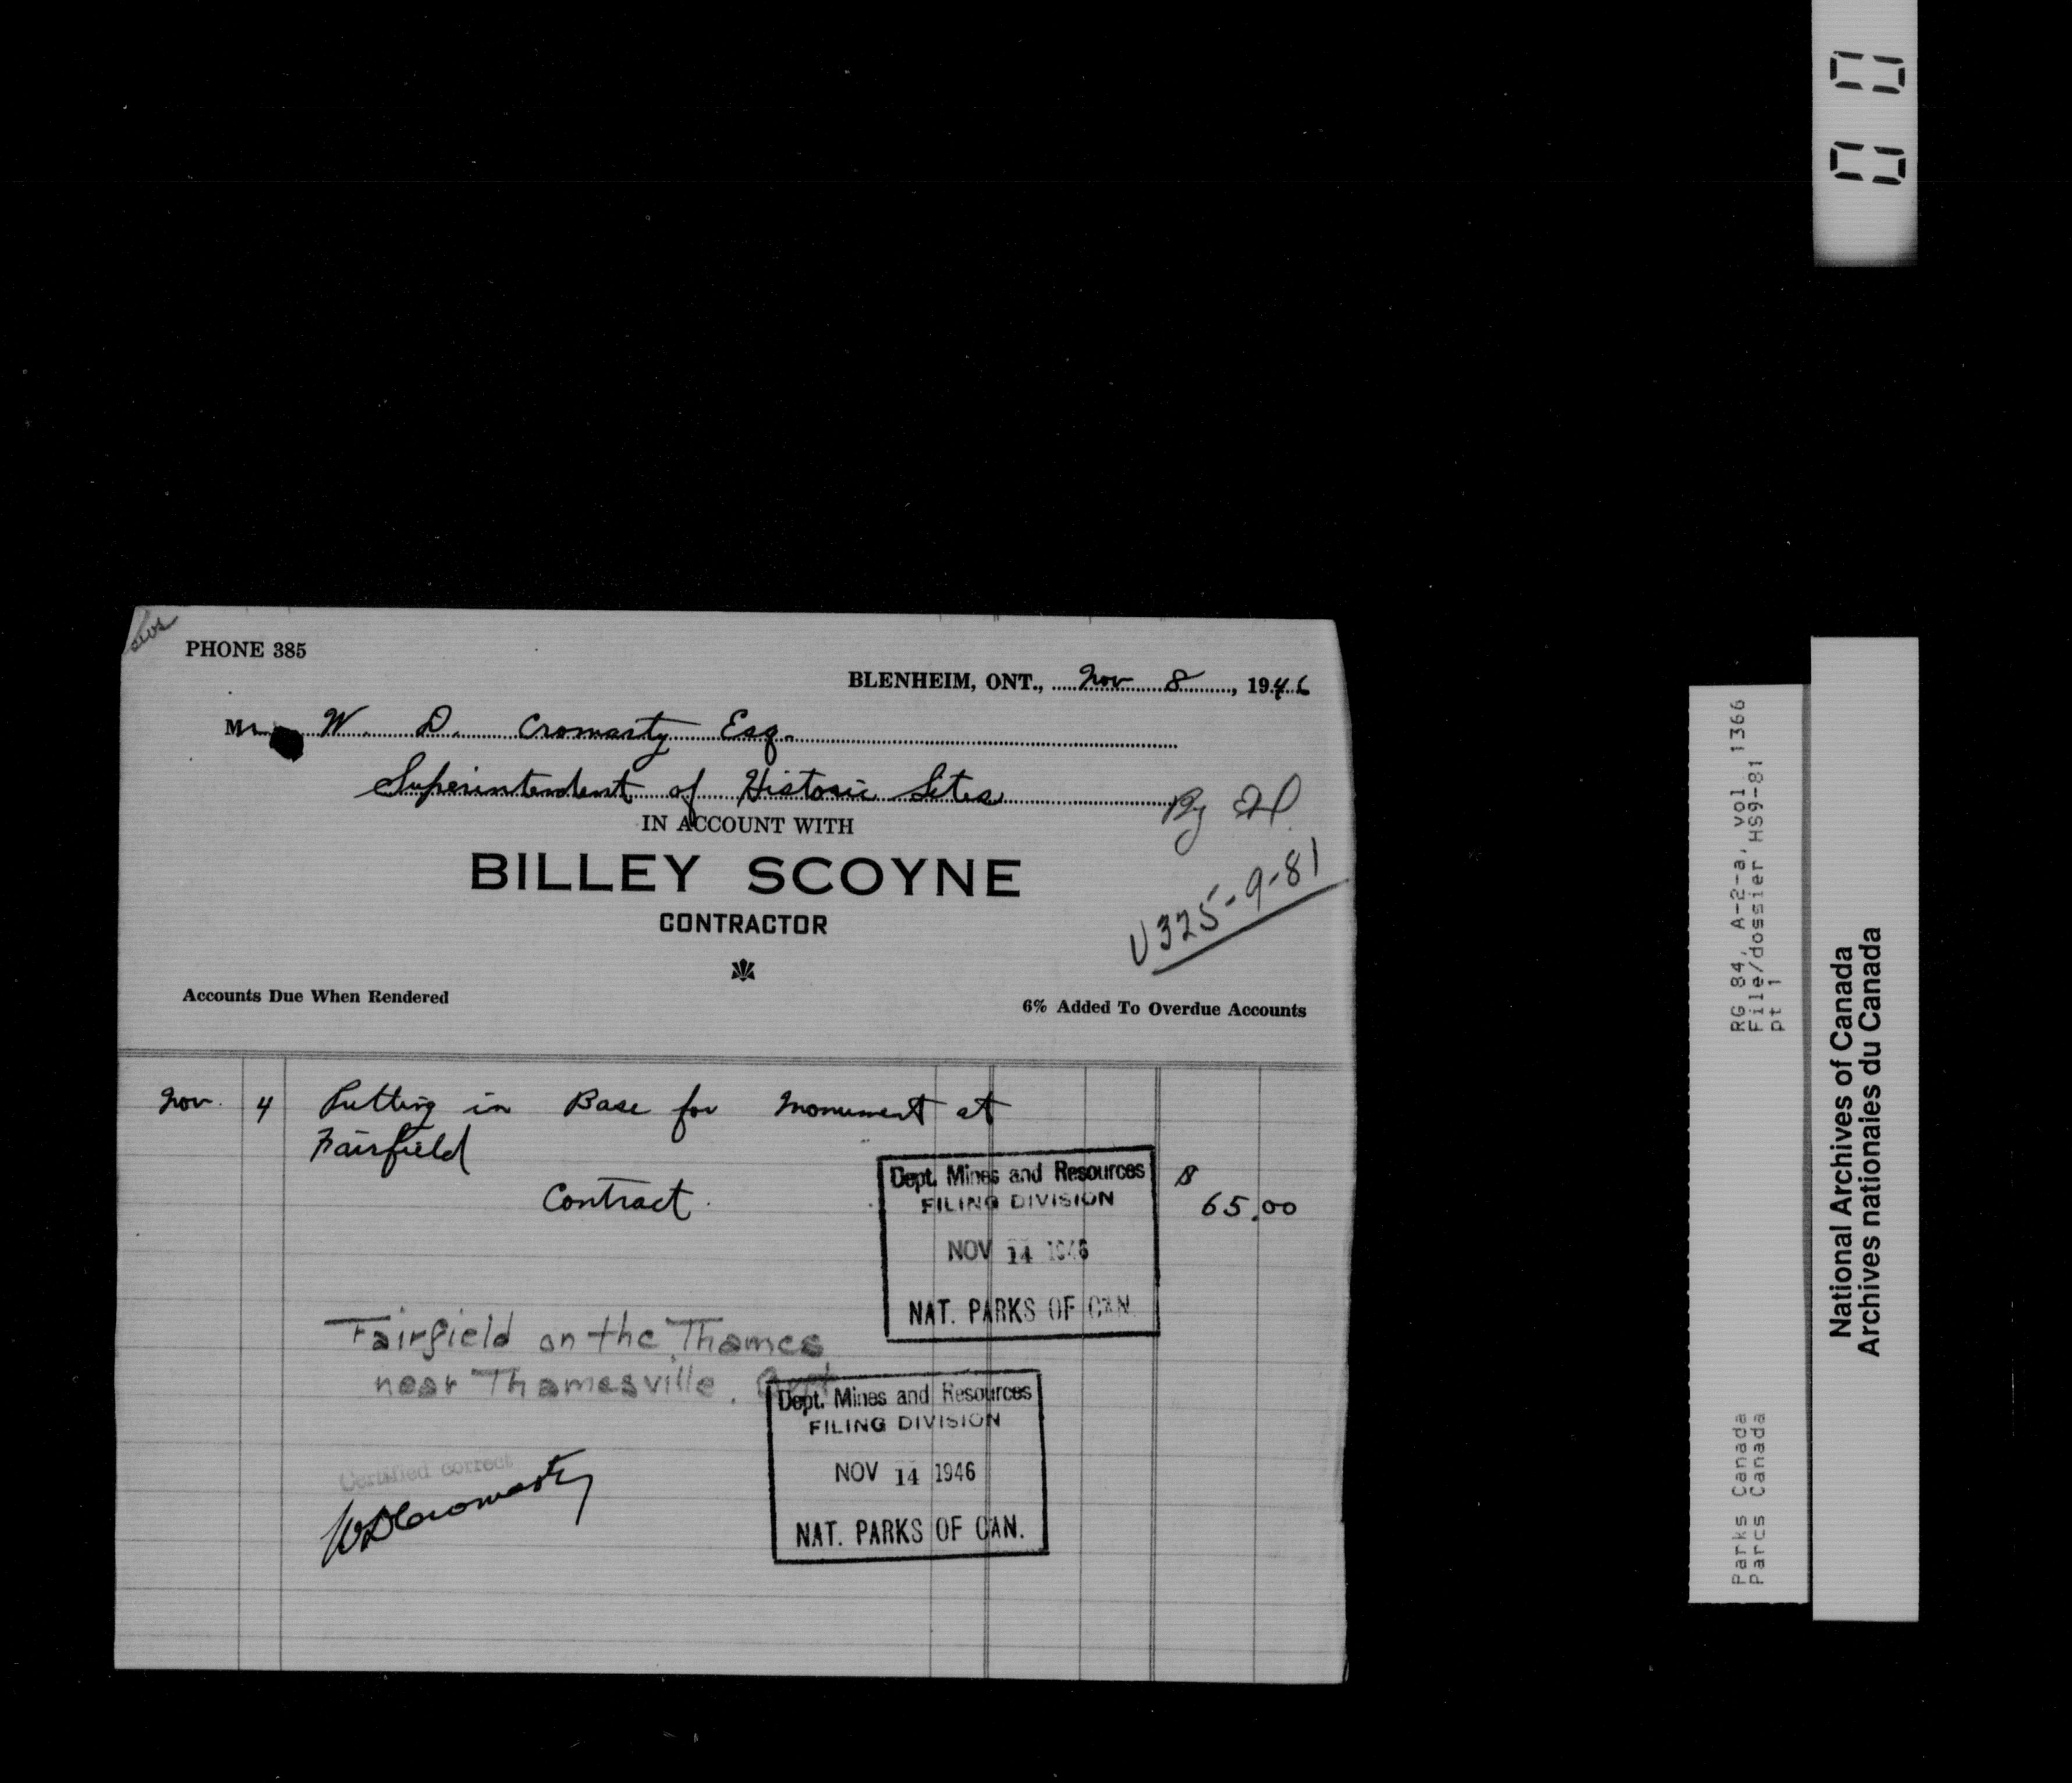 PHONE 385
BLENHEIM, ONT., Nov 8, 1946
Mr W. D. Cromarty Esq.
Superintendent of Historic Sites
IN ACCOUNT WITH
BILLEY SCOYNE
CONTRACTOR
U325-9-81
Accounts Due When Rendered
6% Added To Overdue Accounts
Nov. 4 Putting in Base for Monument at
Fairfield
Contract. $ 65.00
Dept. Mines and Resources
FILING DIVISION
NOV 14 1946
NAT. PARKS OF CAN.
Fairfield on the Thames
near Thamesville. Ont
Dept. Mines and Resources
FILING DIVISION
NOV 14 1946
NAT. PARKS OF CAN.
Certified correct
WDCromarty
RG 84, A-2-a, vol. 1366
File/dossier HS9-81
pt 1
Parks Canada
Parcs Canada
National Archives of Canada
Archives nationales du Canada